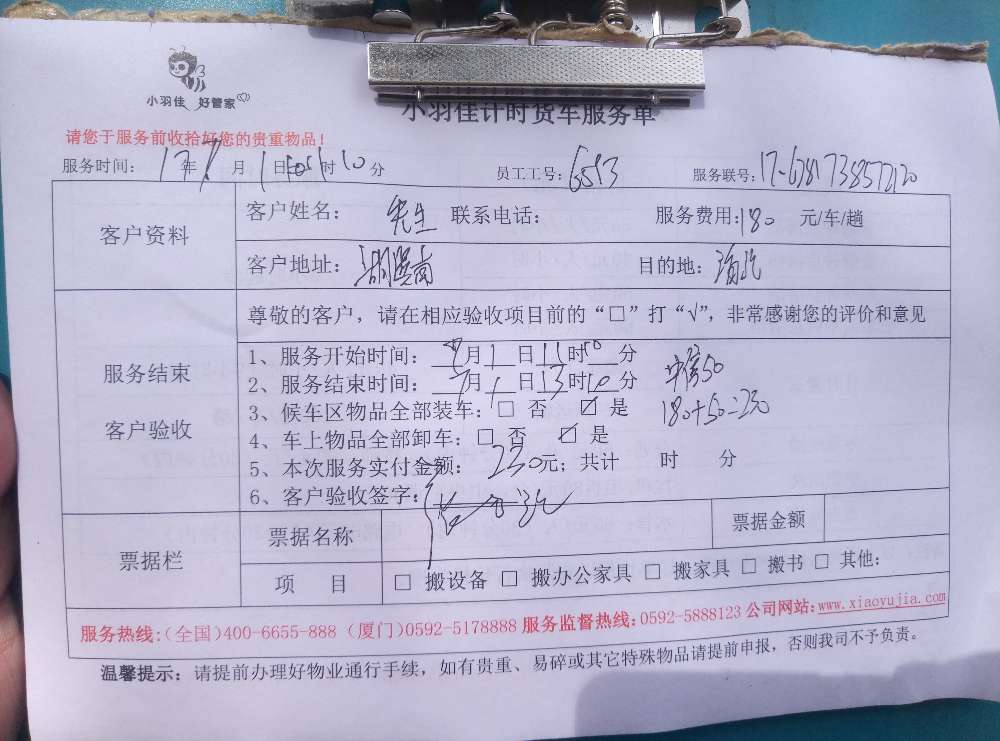 小羽佳 好管家
小羽佳计时货车服务单
请您于服务前收拾好您的贵重物品!
服务时间: 17年7月1日 时10分 员工工号: 6513 服务联号:
客户资料
客户姓名: 先生 联系电话: 服务费用:180 元/车/趟
客户地址: 目的地:
服务结束
客户验收
尊敬的客户，请在相应验收项目前的“□”打“√”，非常感谢您的评价和意见
1、服务开始时间: 7月1日11时50分
2、服务结束时间: 7月1日13时10分 50
3、候车区物品全部装车: □ 否 ☑ 是 180+50=230
4、车上物品全部卸车: □ 否 ☑ 是
5、本次服务实付金额: 230元; 共计 时 分
6、客户验收签字:
票据栏
票据名称 票据金额
项 目 □ 搬设备 □ 搬办公家具 □ 搬家具 □ 搬书 □ 其他:
服务热线:(全国)400-6655-888 (厦门)0592-5178888 服务监督热线:0592-5888123 公司网站:www.xiaoyujia.com
温馨提示: 请提前办理好物业通行手续，如有贵重、易碎或其它特殊物品请提前申报，否则我司不予负责。